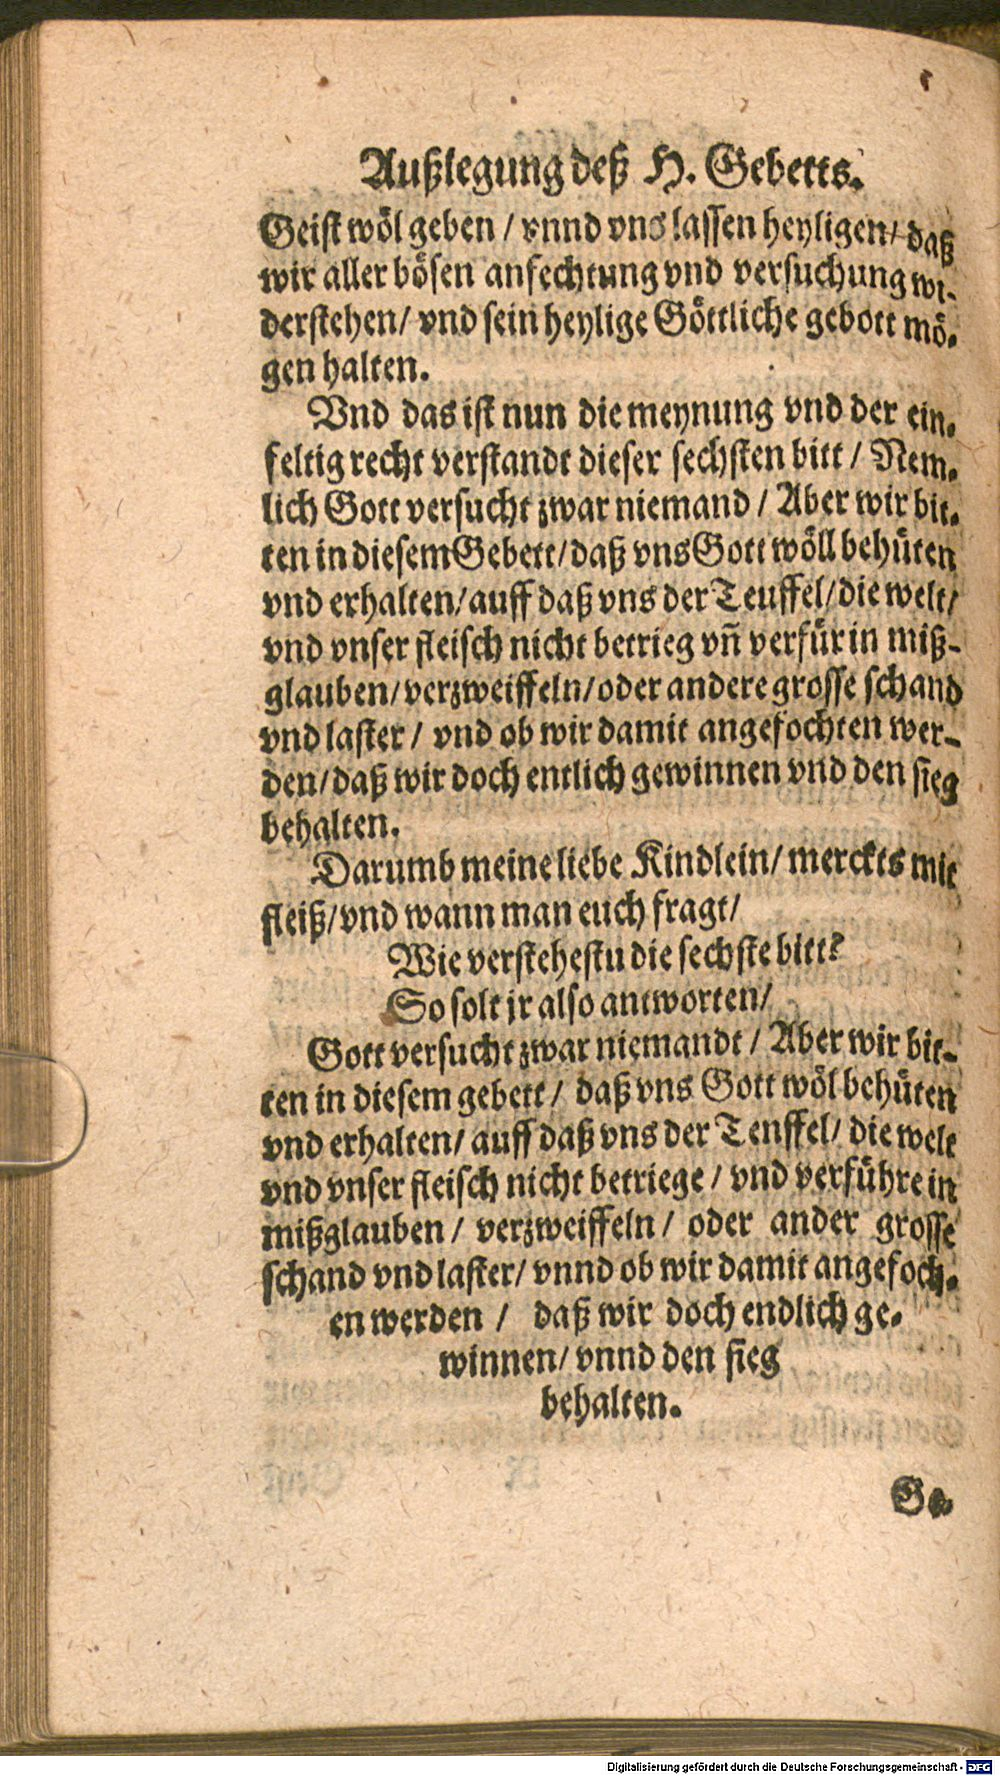 Außlegung deß H. Gebetts.
Geist wöl geben / vnnd vns lassen heyligen / daß
wir aller bösen anfechtung vnd versuchung wi-
derstehen / vnd sein heylige Göttliche gebott mö-
gen halten.
Vnd das ist nun die meynung vnd der ein-
feltig recht verstandt dieser sechsten bitt / Nem-
lich Gott versucht zwar niemand / Aber wir bit-
ten in diesem Gebett / daß vns Gott wöll behüten
vnd erhalten / auff daß vns der Teuffel / die welt /
vnd vnser fleisch nicht betrieg vñ verfür in miß-
glauben / verzweiffeln / oder andere grosse schand
vnd laster / vnd ob wir damit angefochten wer-
den / daß wir doch entlich gewinnen vnd den sieg
behalten.
Darumb meine liebe Kindlein / merckts mit
fleiß / vnd wann man euch fragt /
Wie verstehestu die sechste bitt?
So solt jr also antworten /
Gott versucht zwar niemandt / Aber wir bit-
ten in diesem gebett / daß vns Gott wöl behüten
vnd erhalten / auff daß vns der Tenffel / die welt
vnd vnser fleisch nicht betriege / vnd verführe in
mißglauben / verzweiffeln / oder ander grosse
schand vnd laster / vnnd ob wir damit angefoch-
en werden / daß wir doch endlich ge-
winnen / vnnd den sieg
behalten.
Ge-
Digitalisierung gefördert durch die Deutsche Forschungsgemeinschaft - DFG